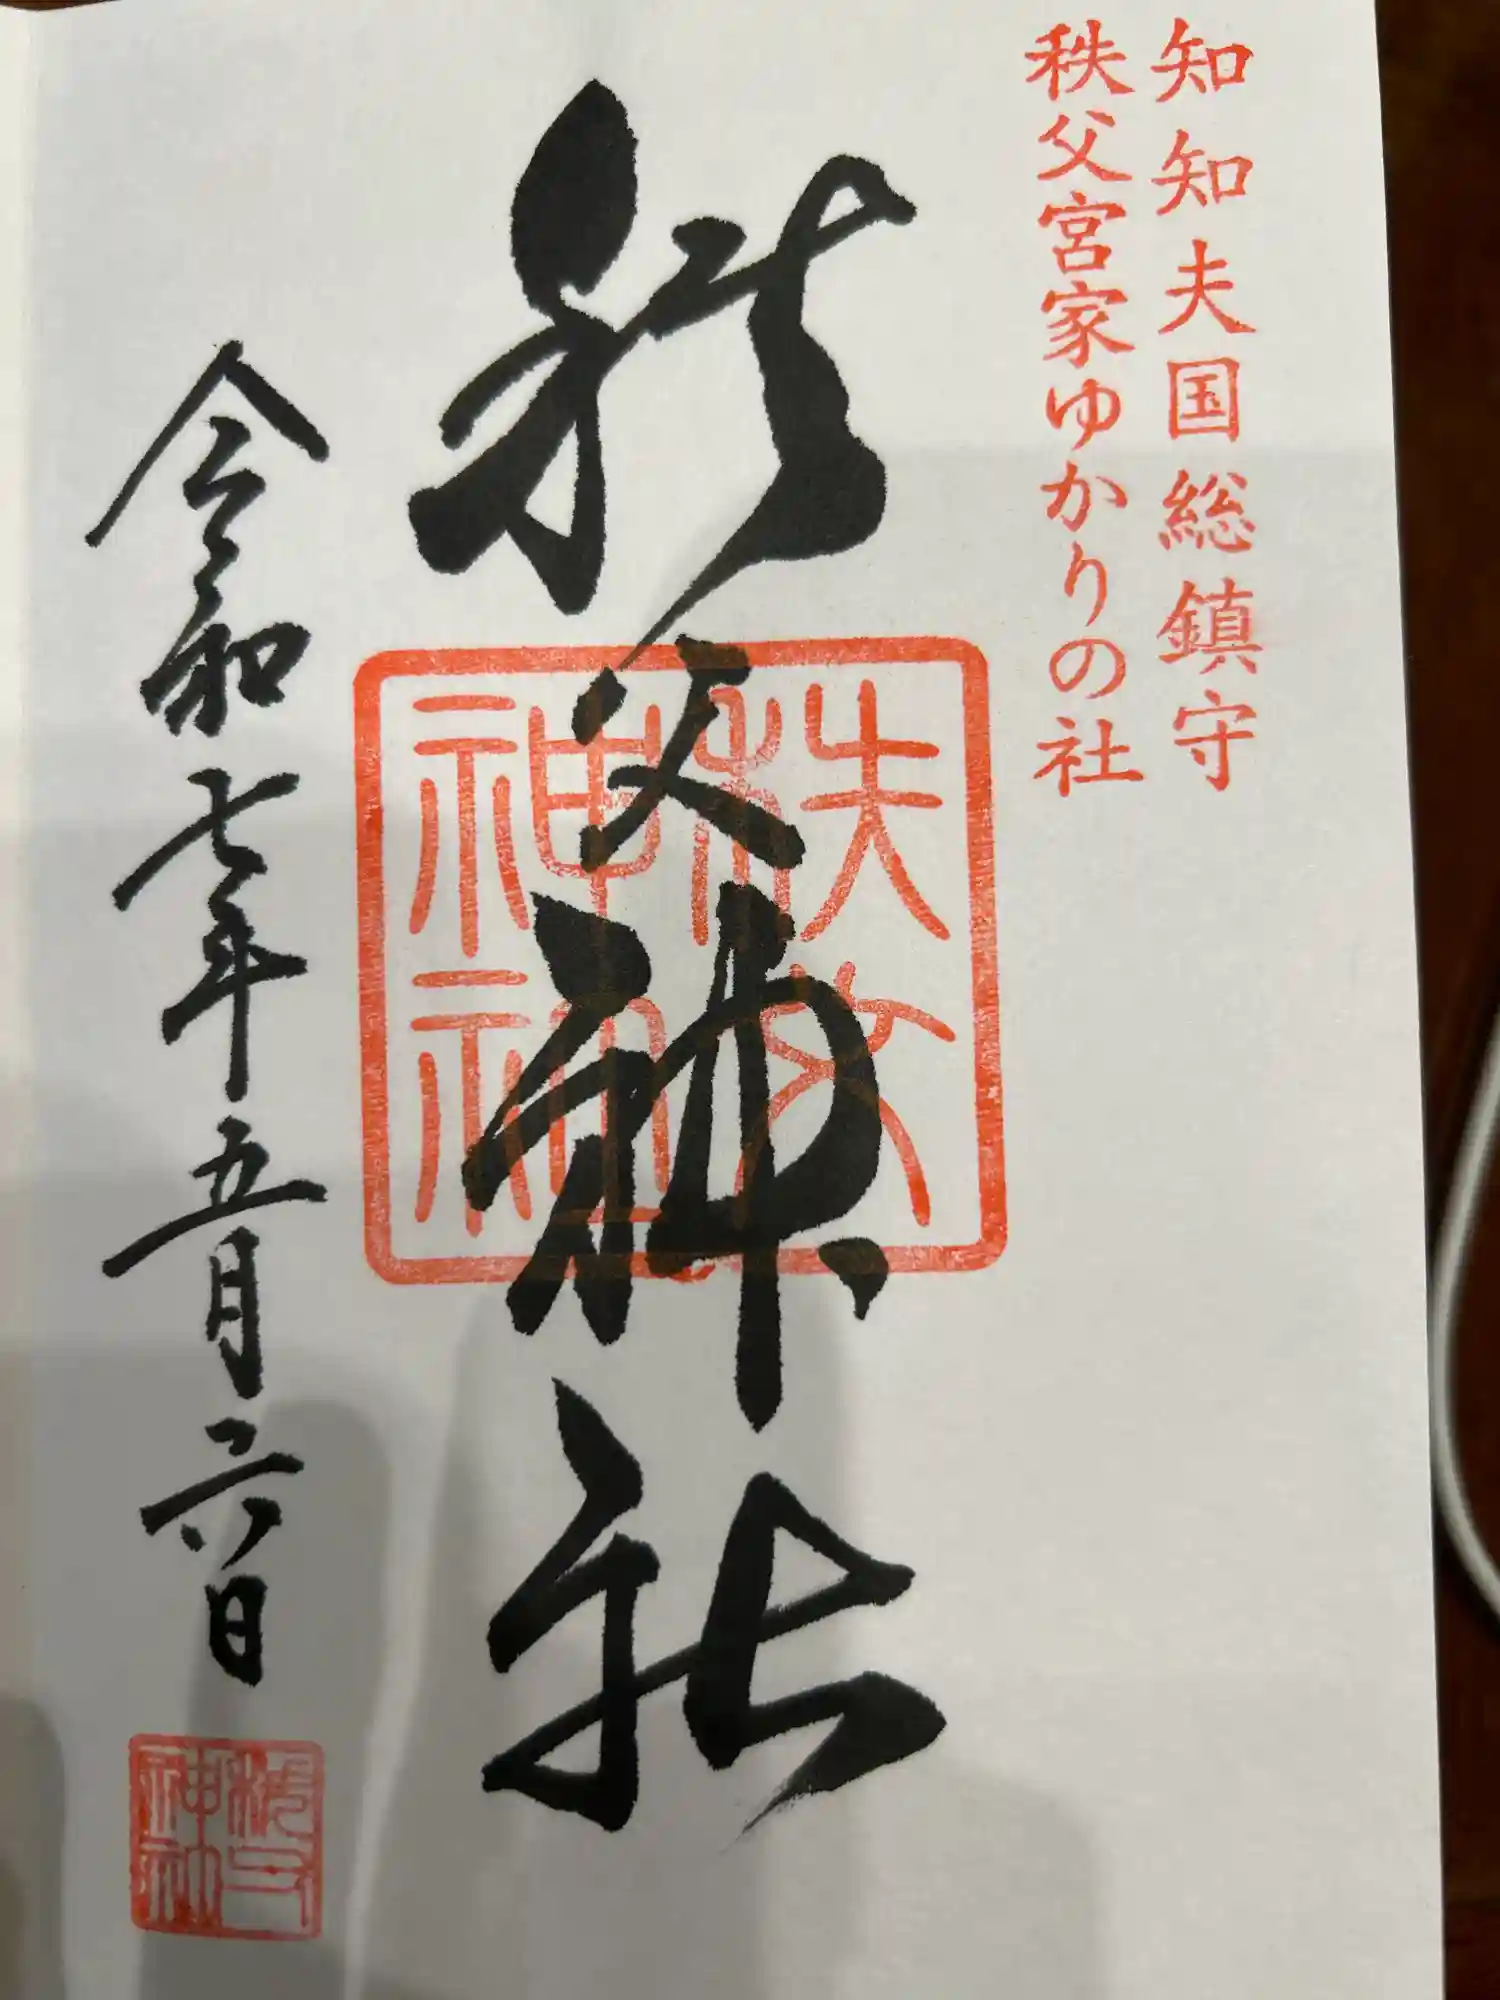 知知夫国総鎮守
秩父宮家ゆかりの社
秩父神社
秩父神社
令和七年五月六日
秩父神社